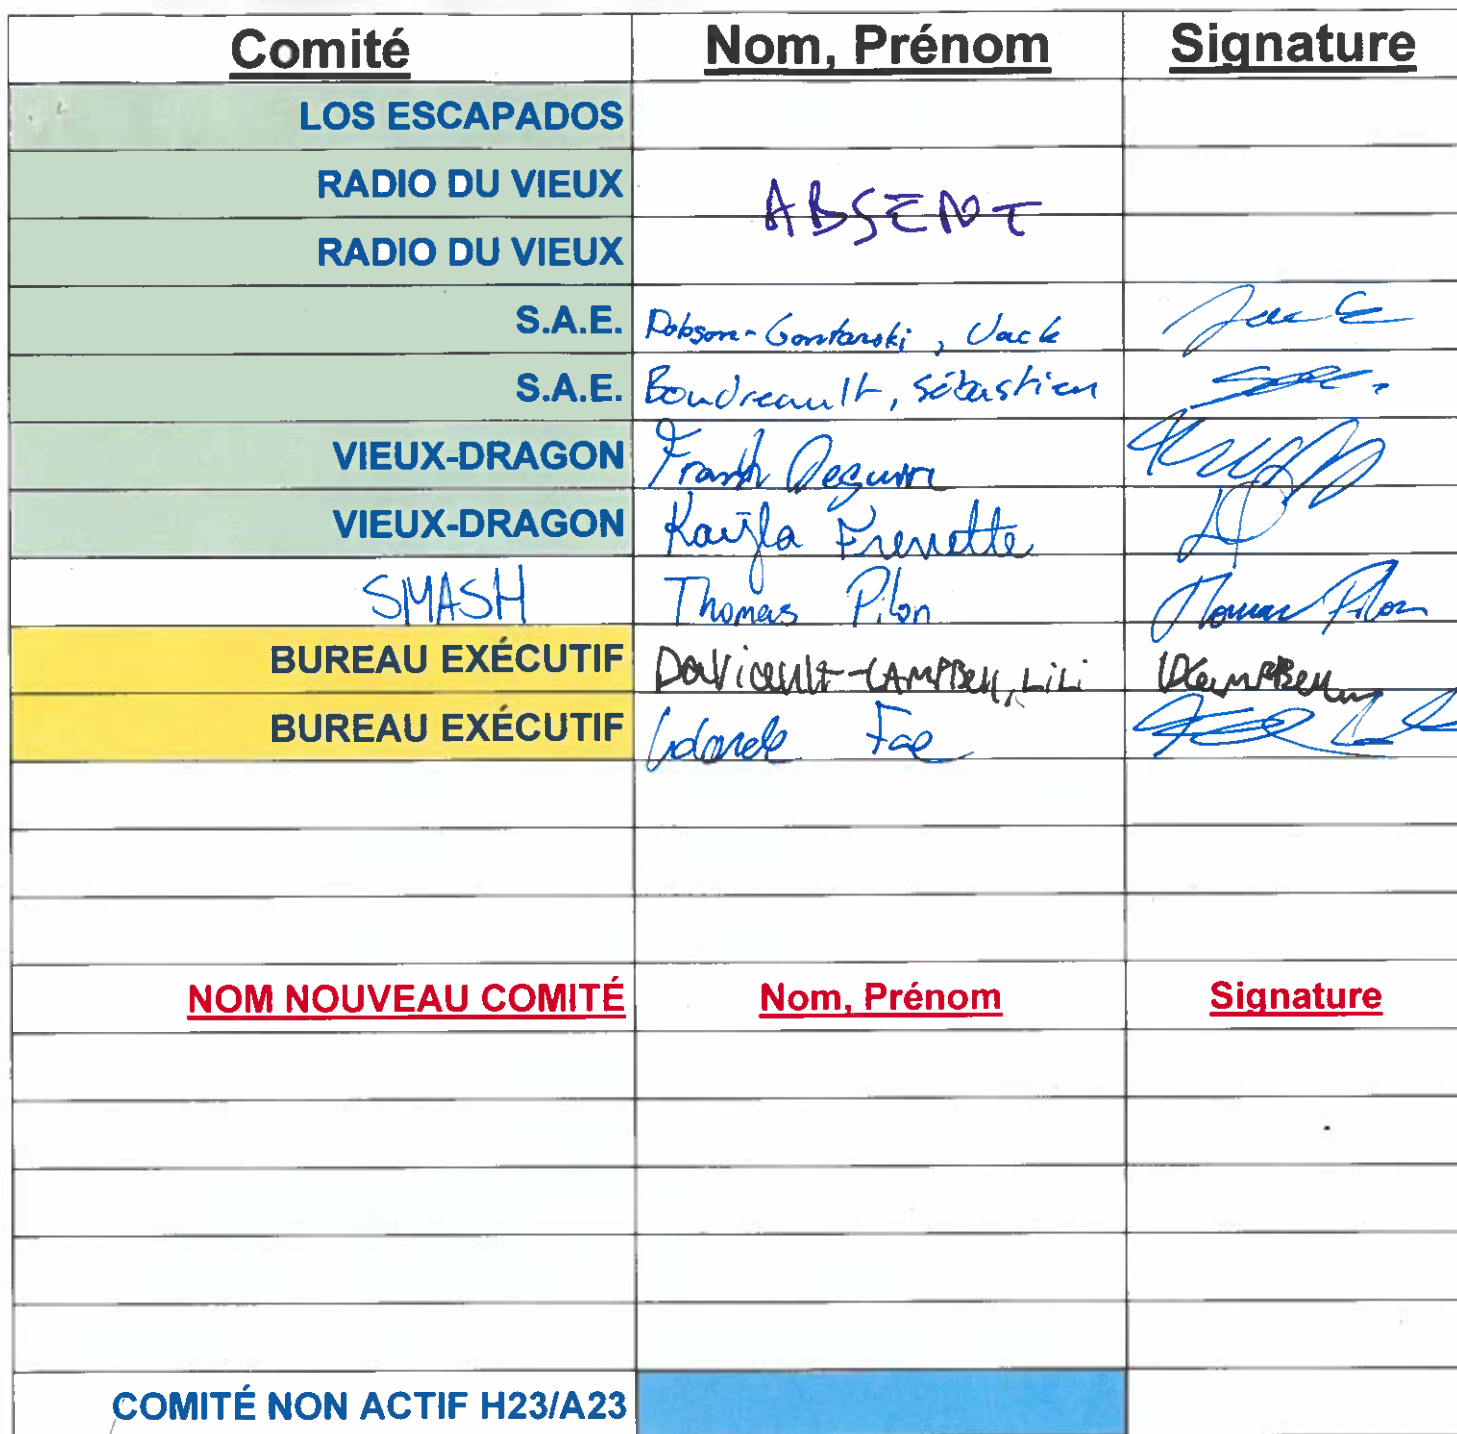 Comité Nom, Prénom Signature
LOS ESCAPADOS
RADIO DU VIEUX
ABSENT
RADIO DU VIEUX
S.A.E. Dobson-Gontarski, Jack
S.A.E. Boudreault, Sébastien
VIEUX-DRAGON Frank Deguire
VIEUX-DRAGON Kaÿla Frenette
SMASH Thomas Pilon Thomas Pilon
BUREAU EXÉCUTIF Daviault-CAMPBell, LiLi
BUREAU EXÉCUTIF Fae
NOM NOUVEAU COMITÉ Nom, Prénom Signature
COMITÉ NON ACTIF H23/A23